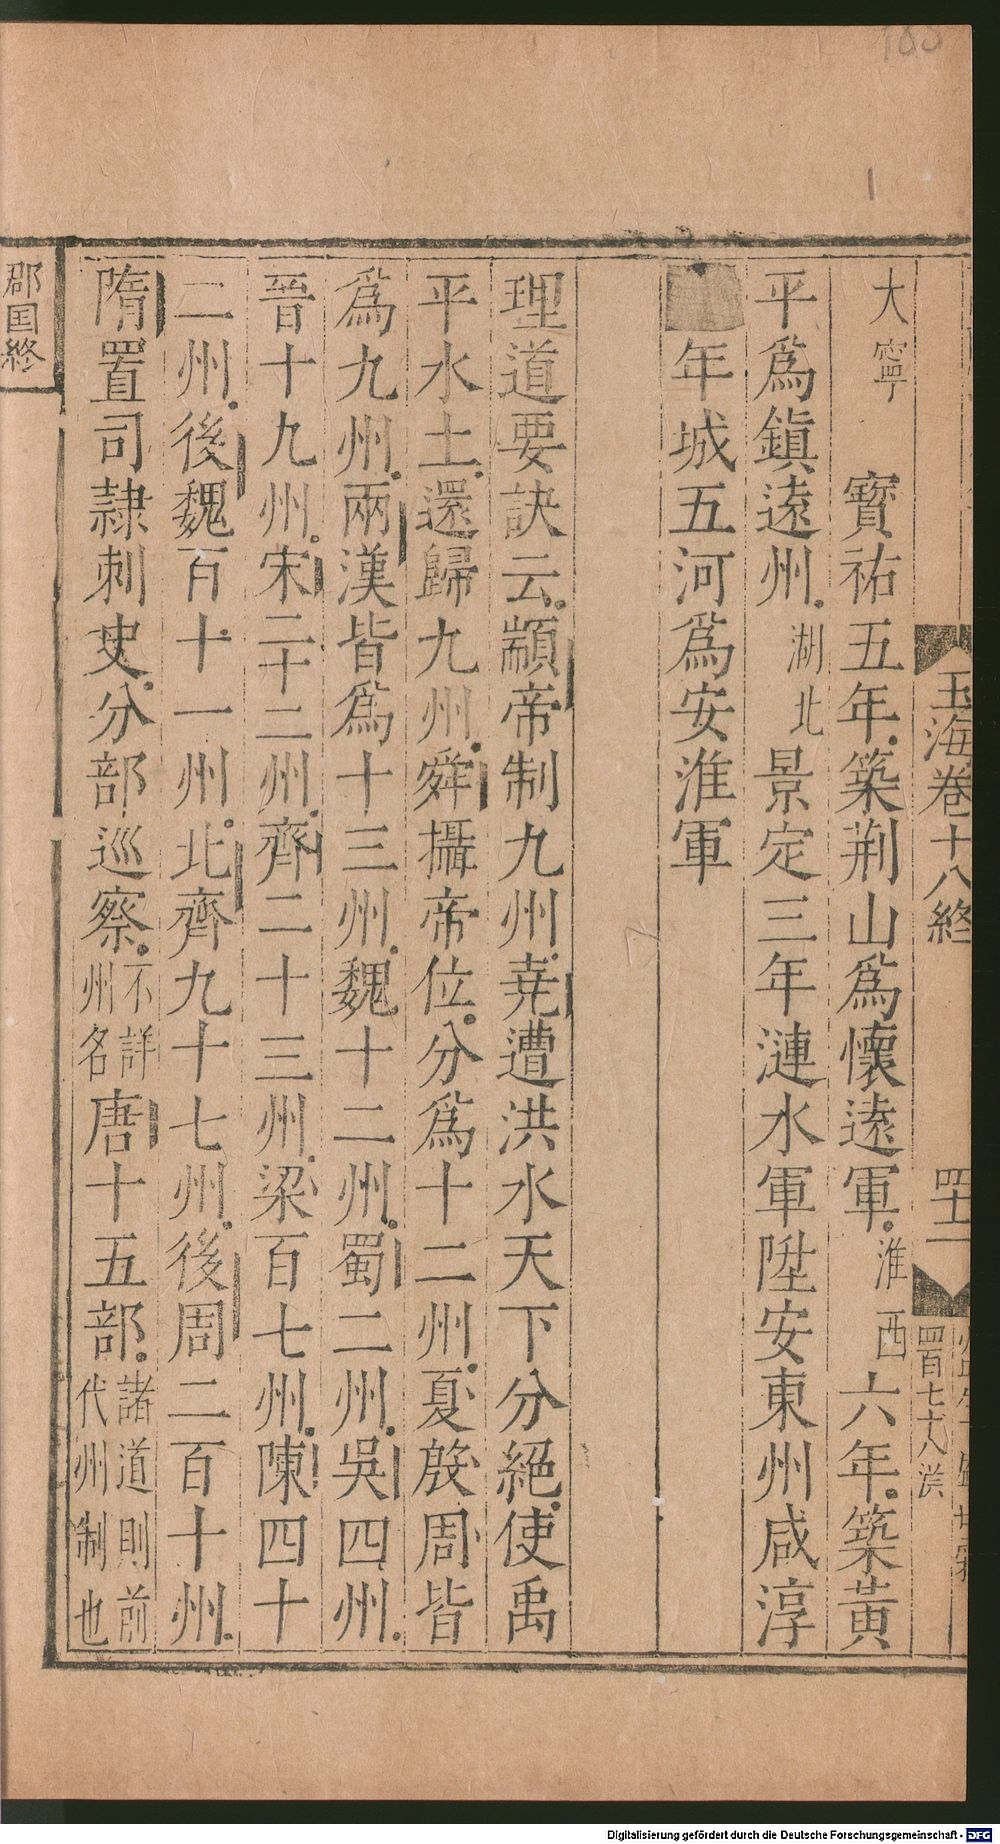 180
玉海卷十八終
四十二
四百七十八
大寧 寳祐五年築荆山爲懷遠軍淮西六年築黄
平爲鎭遠州湖北景定三年漣水軍陞安東州咸淳
年城五河爲安淮軍
理道要訣云顓帝制九州堯遭洪水天下分絕使禹
平水土還歸九州舜攝帝位分爲十二州夏殷周皆
爲九州兩漢皆爲十三州魏十二州蜀二州吳四州
晉十九州宋二十二州齊二十三州梁百七州陳四十
二州後魏百十一州北齊九十七州後周二百十州
隋置司隷刺史分部巡察不詳州名唐十五部諸道則前代州制也
郡国終
Digitalisierung gefördert durch die Deutsche Forschungsgemeinschaft - DFG